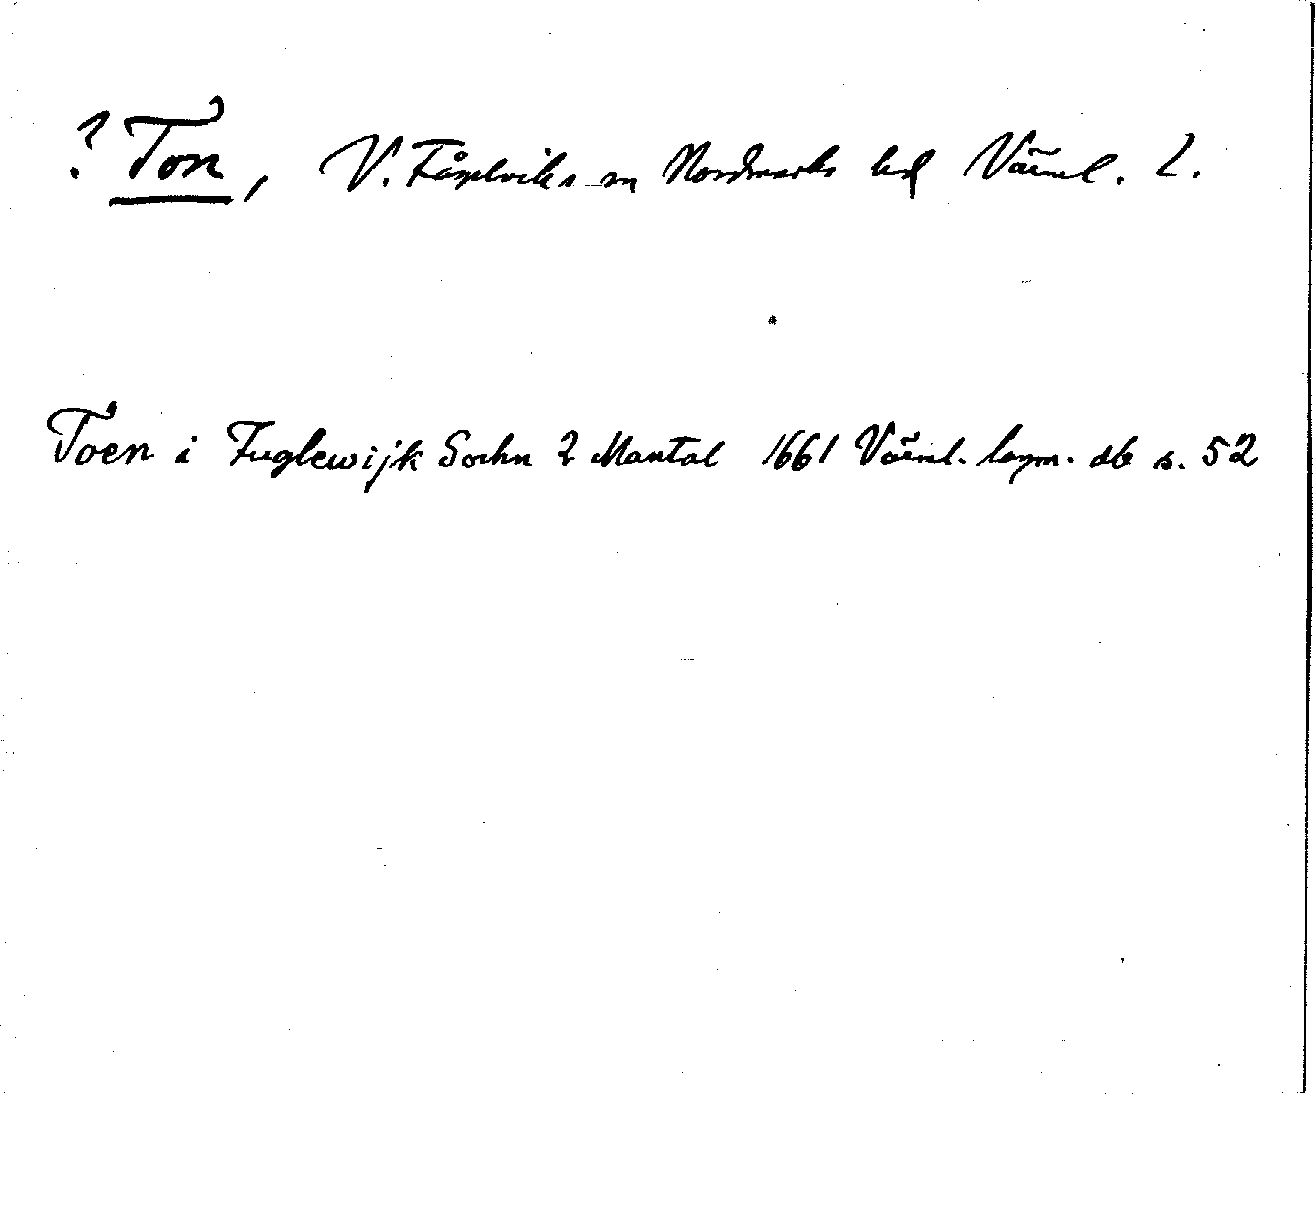 ? Ton, V. Fågelviks sn Nordmarks hd Värml. L.
Toen i Fuglewijk Sochn 2 Mantal 1661 Värml. lagm. db s. 52